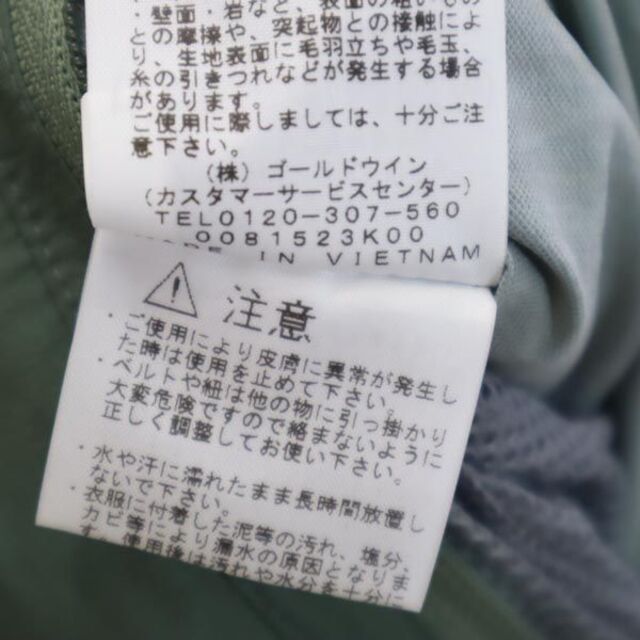 ・壁面、岩など、表面の粗いもの
や、突起物との接触によ
との摩擦や、
り、生地表面に毛羽立ちや毛玉、
糸の引きつれなどが発生する場合
があります。
ご使用に際しましては、十分ご注
意下さい。
(株) ゴールドウイン
(カスタマーサービスセンター)
TEL0120-307-560
0081523K00
MADE IN VIETNAM
注意
・ご使用により皮膚に異常が発生し
た時は使用を止めて下さい。
・ベルトや紐は他の物に引っ掛かり
大変危険ですので絡まないように
正しく調整してお使い下さい。
・水や汗に濡れたまま長時間放置し
ないで下さい。
・衣服に付着した泥等の汚れ、塩分、
カビ等により漏水の原因となりま
す。使用後は汚れや水分を十分